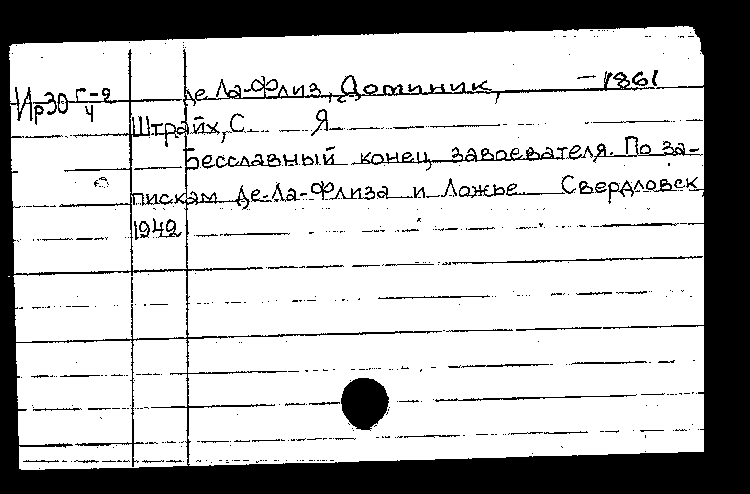 Ир30 Г-2
4
де Ла-Флиз, Доминик, -1861
Штрайх, С. Я
Бесславный конец завоевателя. По за-
пискам Де-Ла-Флиза и Ложье. Свердловск,
1942